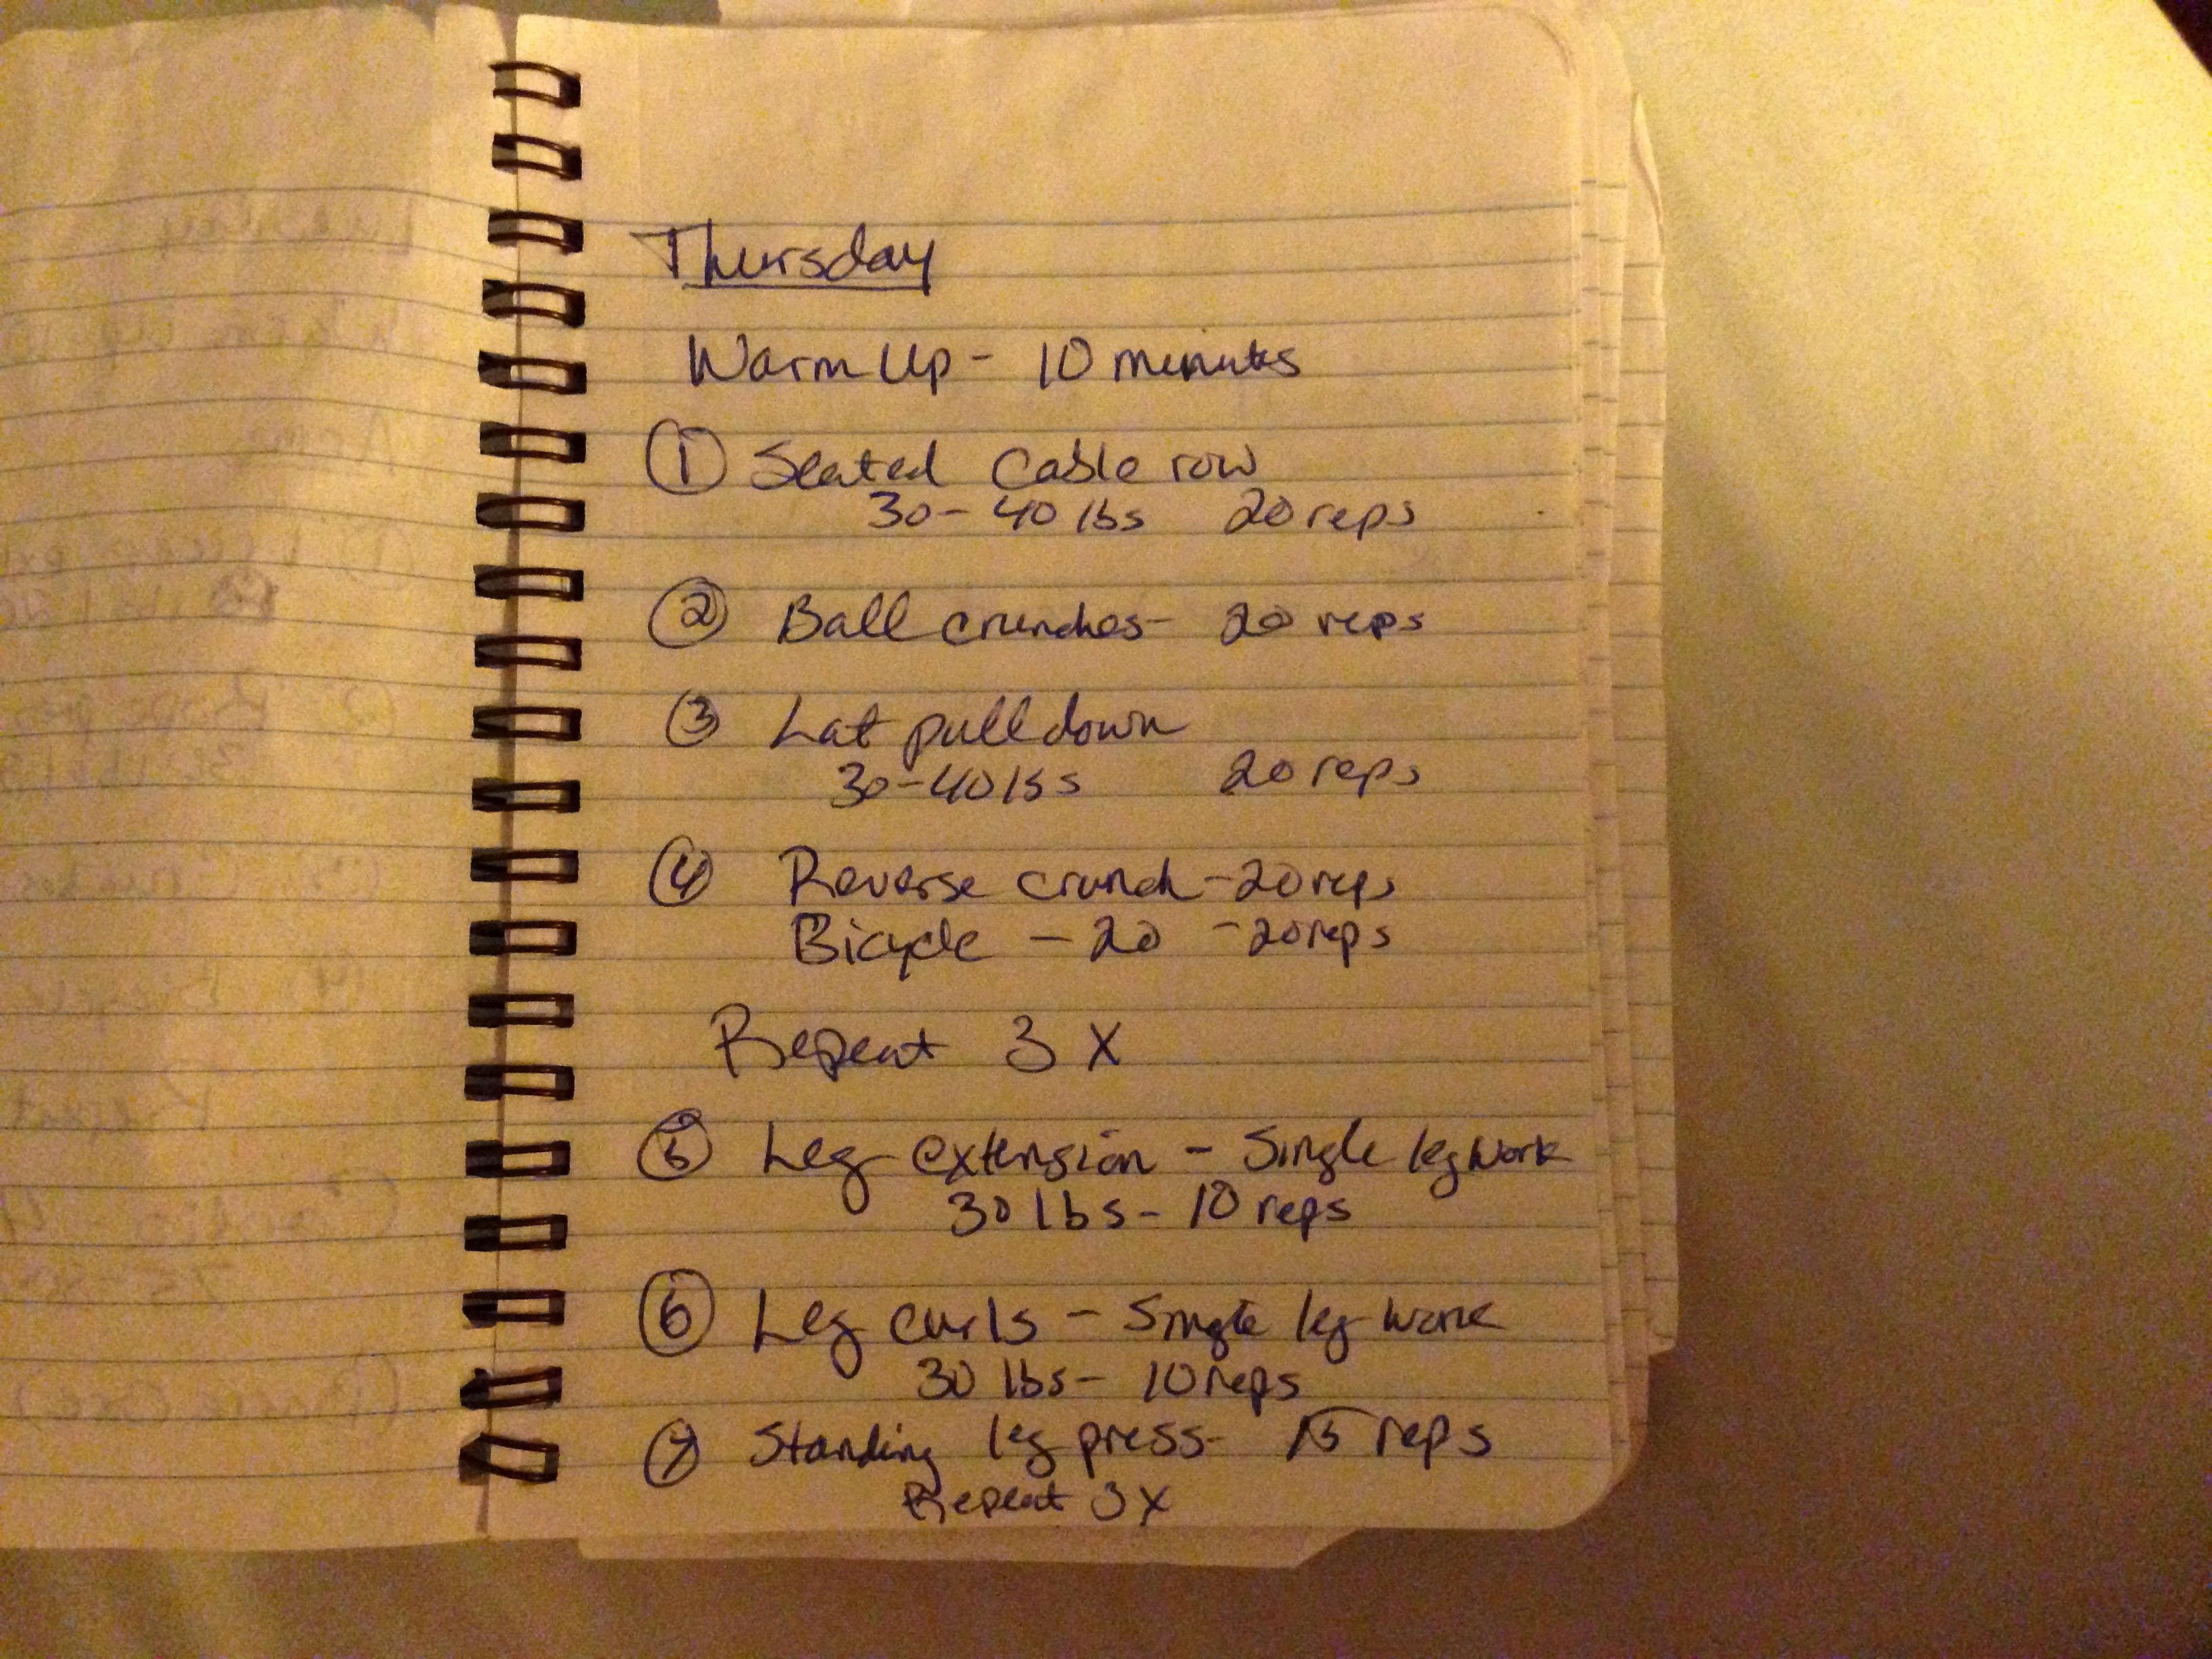 Thursday
Warm Up - 10 minutes
① Seated Cable row
30-40 lbs 20 reps
② Ball crunches- 20 reps
③ Lat pull down
30-40 lbs 20 reps
④ Reverse crunch -20reps
Bicycle - 20 -20reps
Repeat 3 X
⑤ Leg extension - Single leg work
30 lbs - 10 reps
⑥ Leg curls - Single leg work
30 lbs - 10 reps
⑦ Standing leg press- 15 reps
Repeat 3X